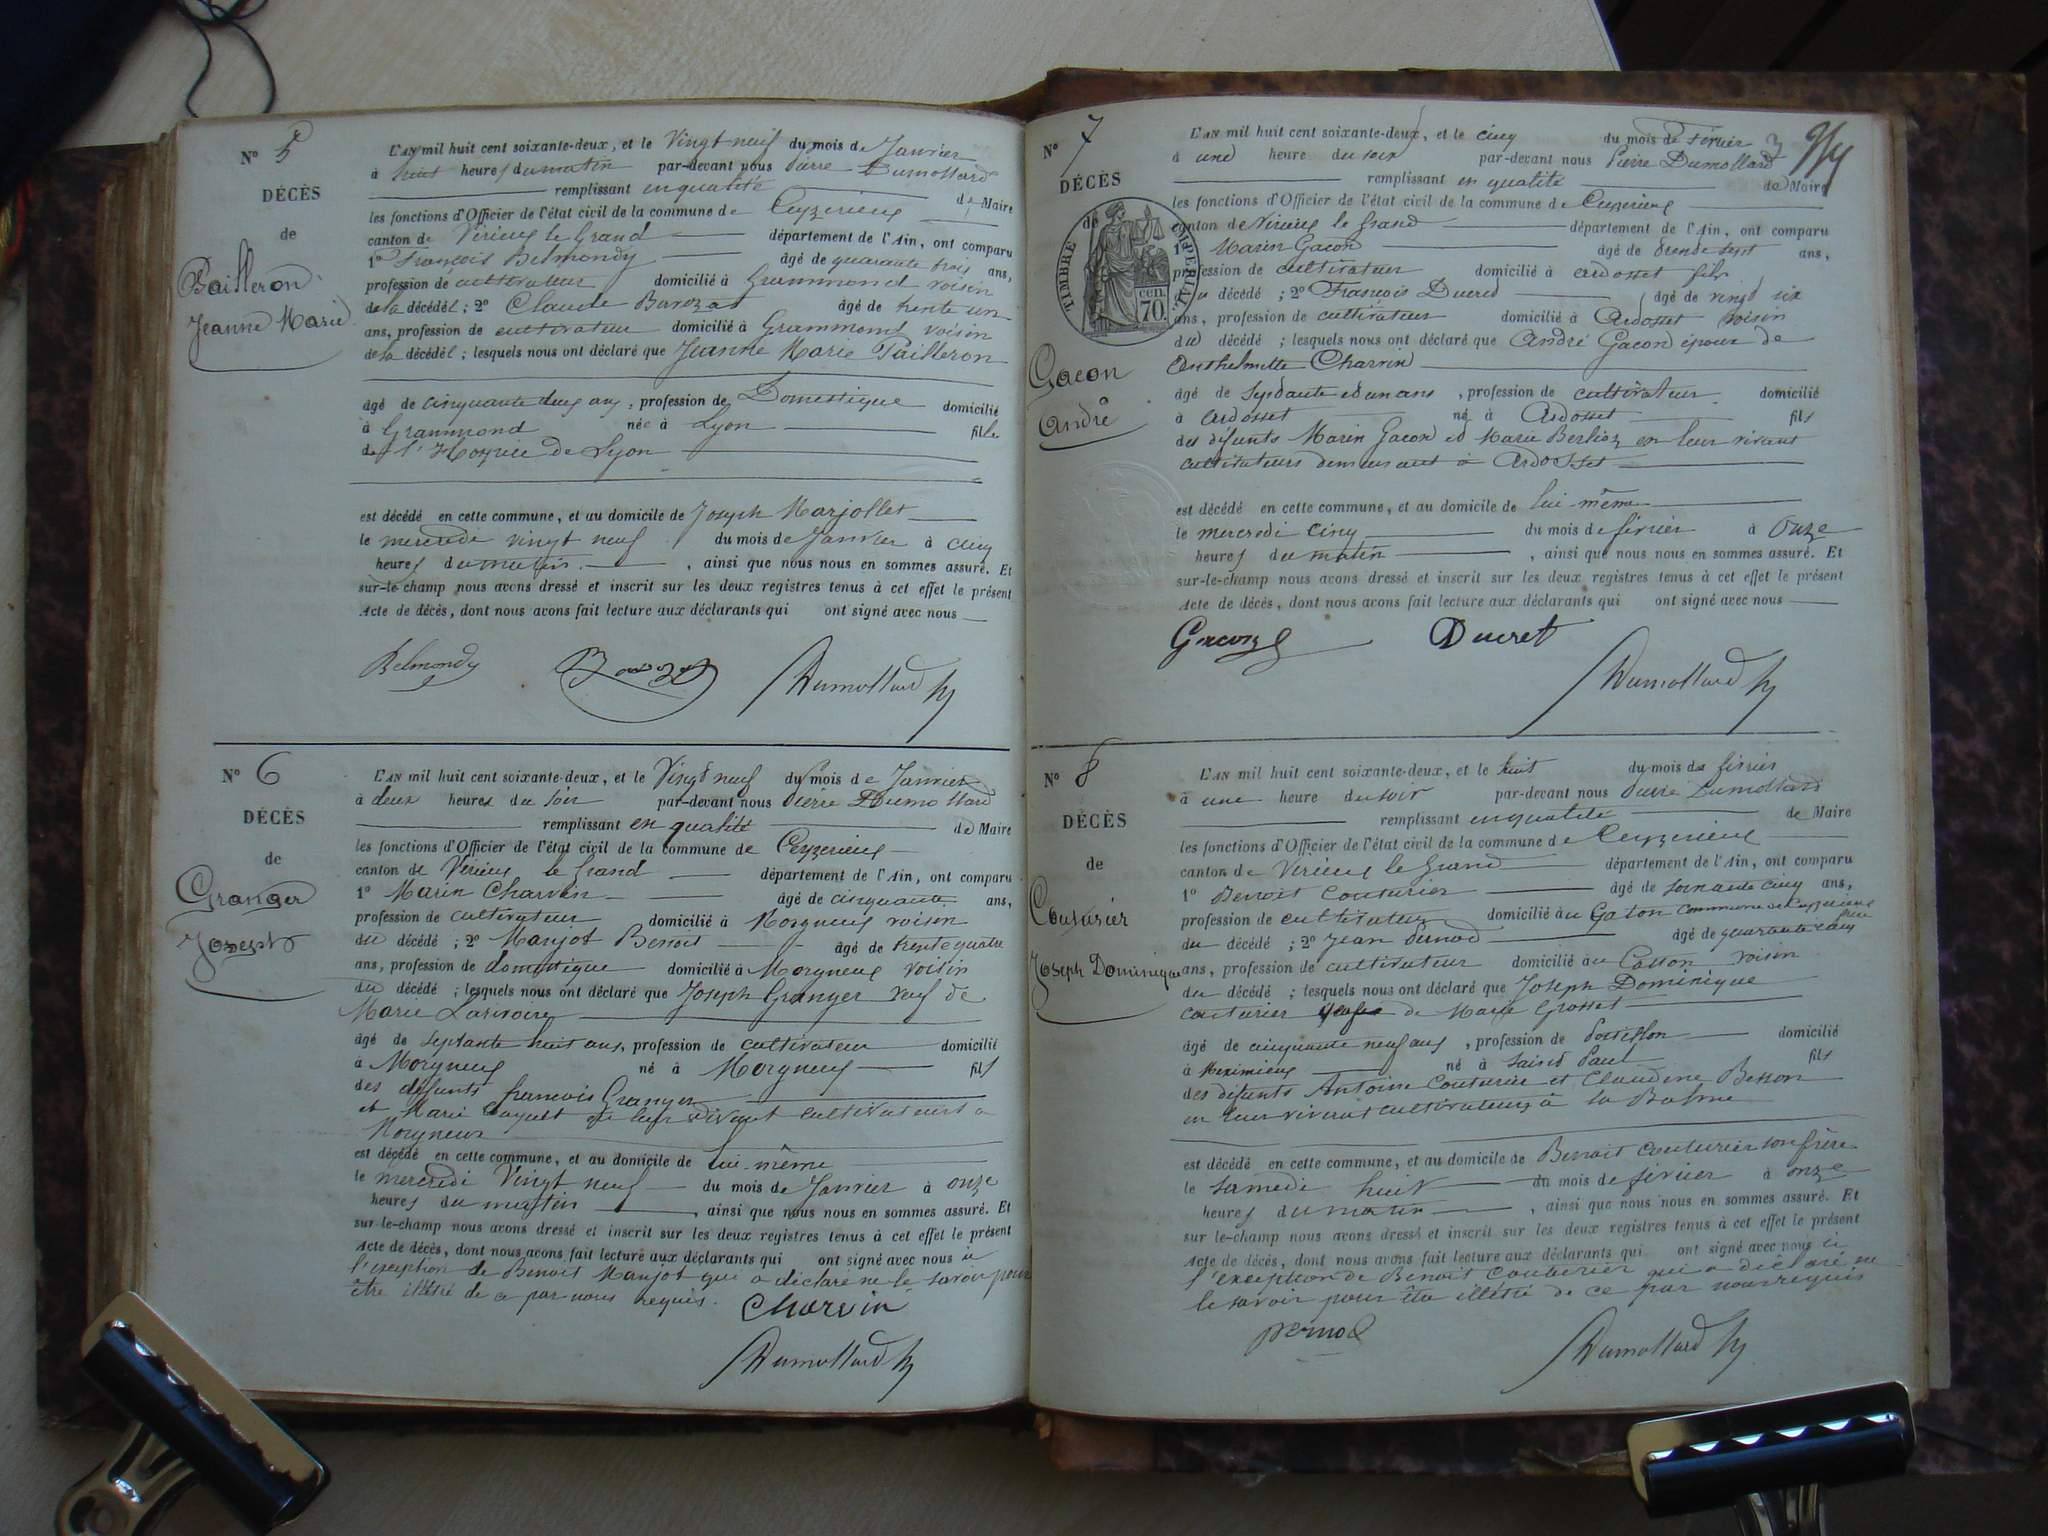 N° 5
DÉCÈS
de
Bailleron
Jeanne Marie
L'AN mil huit cent soixante-deux, et le Vingt neuf du mois de Janvier
à huit heures du matin par-devant nous Pierre Dumollard
remplissant en qualité de Maire
les fonctions d'Officier de l'état civil de la commune de Ceyzerieux
canton de Virieux le Grand département de l'Ain, ont comparu
1° François Belmondy âgé de quarante trois ans,
profession de cultivateur domicilié à Grammond voisin
de la décédée ; 2° Claude Barozat âgé de trente un
ans, profession de cultivateur domicilié à Grammond voisin
de la décédée ; lesquels nous ont déclaré que Jeanne Marie Bailleron
âgé de cinquante deux ans, profession de Domestique domicilié
à Grammond née à Lyon fille
de l'Hospice de Lyon
est décédé en cette commune, et au domicile de Joseph Marjollet
le mercredi vingt neuf du mois de Janvier à cinq
heures du matin, ainsi que nous nous en sommes assuré. Et
sur-le-champ nous avons dressé et inscrit sur les deux registres tenus à cet effet le présent
Acte de décès, dont nous avons fait lecture aux déclarants qui ont signé avec nous
Belmondy Barozat Dumollard
N° 6
DÉCÈS
de
Granger
Joseph
L'AN mil huit cent soixante-deux, et le Vingt neuf du mois de Janvier
à deux heures du soir par-devant nous Pierre Dumollard
remplissant en qualité de Maire
les fonctions d'Officier de l'état civil de la commune de Ceyzerieux
canton de Virieux le Grand département de l'Ain, ont comparu
1° Marin Charvin âgé de cinquante ans,
profession de cultivateur domicilié à Morgneux voisin
du décédé ; 2° Manjot Benoit âgé de trente quatre
ans, profession de domestique domicilié à Morgneux voisin
du décédé ; lesquels nous ont déclaré que Joseph Granger veuf de
Marie Larivoire
âgé de septante huit ans, profession de cultivateur domicilié
à Morgneux né à Morgneux fils
des défunts francois Granger
et Marie en leur vivant cultivateurs à
Morgneux
est décédé en cette commune, et au domicile de lui-même
le mercredi Vingt neuf du mois de Janvier à onze
heures du matin, ainsi que nous nous en sommes assuré. Et
sur le-champ nous avons dressé et inscrit sur les deux registres tenus à cet effet le présent
Acte de décès, dont nous avons fait lecture aux déclarants qui ont signé avec nous à
l'exception de Benoit Manjot qui a déclaré ne le savoir pour
être illétré de ce par nous requis. Charvin
Dumollard
3
N° 7
DÉCÈS
de
TIMBRE IMPERIAL
70 cen.
Gacon
André
L'AN mil huit cent soixante-deux, et le cinq du mois de Février
à une heure du soir par-devant nous Pierre Dumollard
remplissant en qualité de Maire
les fonctions d'Officier de l'état civil de la commune de Ceyzerieux
canton de Virieux le Grand département de l'Ain, ont comparu
1° Marin Gacon âgé de trente sept ans,
profession de cultivateur domicilié à Ardosset fils
du décédé ; 2° François Ducret âgé de vingt six
ans, profession de cultivateur domicilié à Ardosset voisin
du décédé ; lesquels nous ont déclaré que André Gacon époux de
Anthelmette Charvin
âgé de septante et un ans, profession de cultivateur domicilié
à Ardosset né à Ardosset fils
des défunts Marin Gacon et Marie Berlioz en leur vivant
cultivateurs demeurant à Ardosset
est décédé en cette commune, et au domicile de lui-même
le mercredi cinq du mois de février à Onze
heures du matin, ainsi que nous nous en sommes assuré. Et
sur-le-champ nous avons dressé et inscrit sur les deux registres tenus à cet effet le présent
Acte de décès, dont nous avons fait lecture aux déclarants qui ont signé avec nous
Gacon Ducret
Dumollard
N° 8
DÉCÈS
de
Couturier
Joseph Dominique
L'AN mil huit cent soixante-deux, et le huit du mois de février
à une heure du soir par-devant nous Pierre Dumollard
remplissant en qualité de Maire
les fonctions d'Officier de l'état civil de la commune de Ceyzerieux
canton de Virieux le Grand département de l'Ain, ont comparu
1° Benoit Couturier âgé de soixante cinq ans,
profession de cultivateur domicilié au Caton commune de Ceyzerieux frère
du décédé ; 2° Jean Pernod âgé de quarante cinq
ans, profession de cultivateur domicilié au Catton voisin
du décédé ; lesquels nous ont déclaré que Joseph Dominique
couturier de Marie Grosset
âgé de cinquante neuf ans, profession de Postillon domicilié
à Meximieux né à Saint Paul fils
des défunts Antoine Couturier et Claudine Besson
en leur vivant cultivateurs à la Balme
est décédé en cette commune, et au domicile de Benoit Couturier son frère
le samedi huit du mois de février à onze
heures du matin, ainsi que nous nous en sommes assuré. Et
sur-le-champ nous avons dressé et inscrit sur les deux registres tenus à cet effet le présent
Acte de décès, dont nous avons fait lecture aux déclarants qui ont signé avec nous à
l'exception de Benoit Couturier qui a déclaré ne
le savoir pour être illétré de ce par nous requis
pernod Dumollard